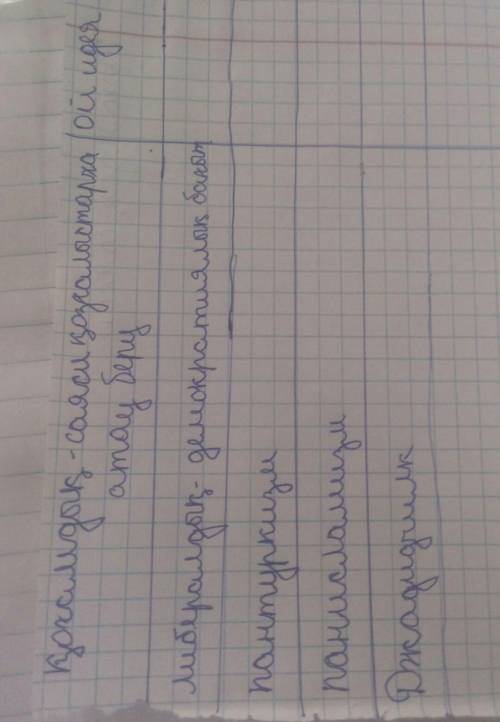 Қоғамдық - саяси қозғалыстарға
атау беру
Ой идея
либералдық - демократиялық бағыт
пантуркизм
панисламизм
Джадидчилк